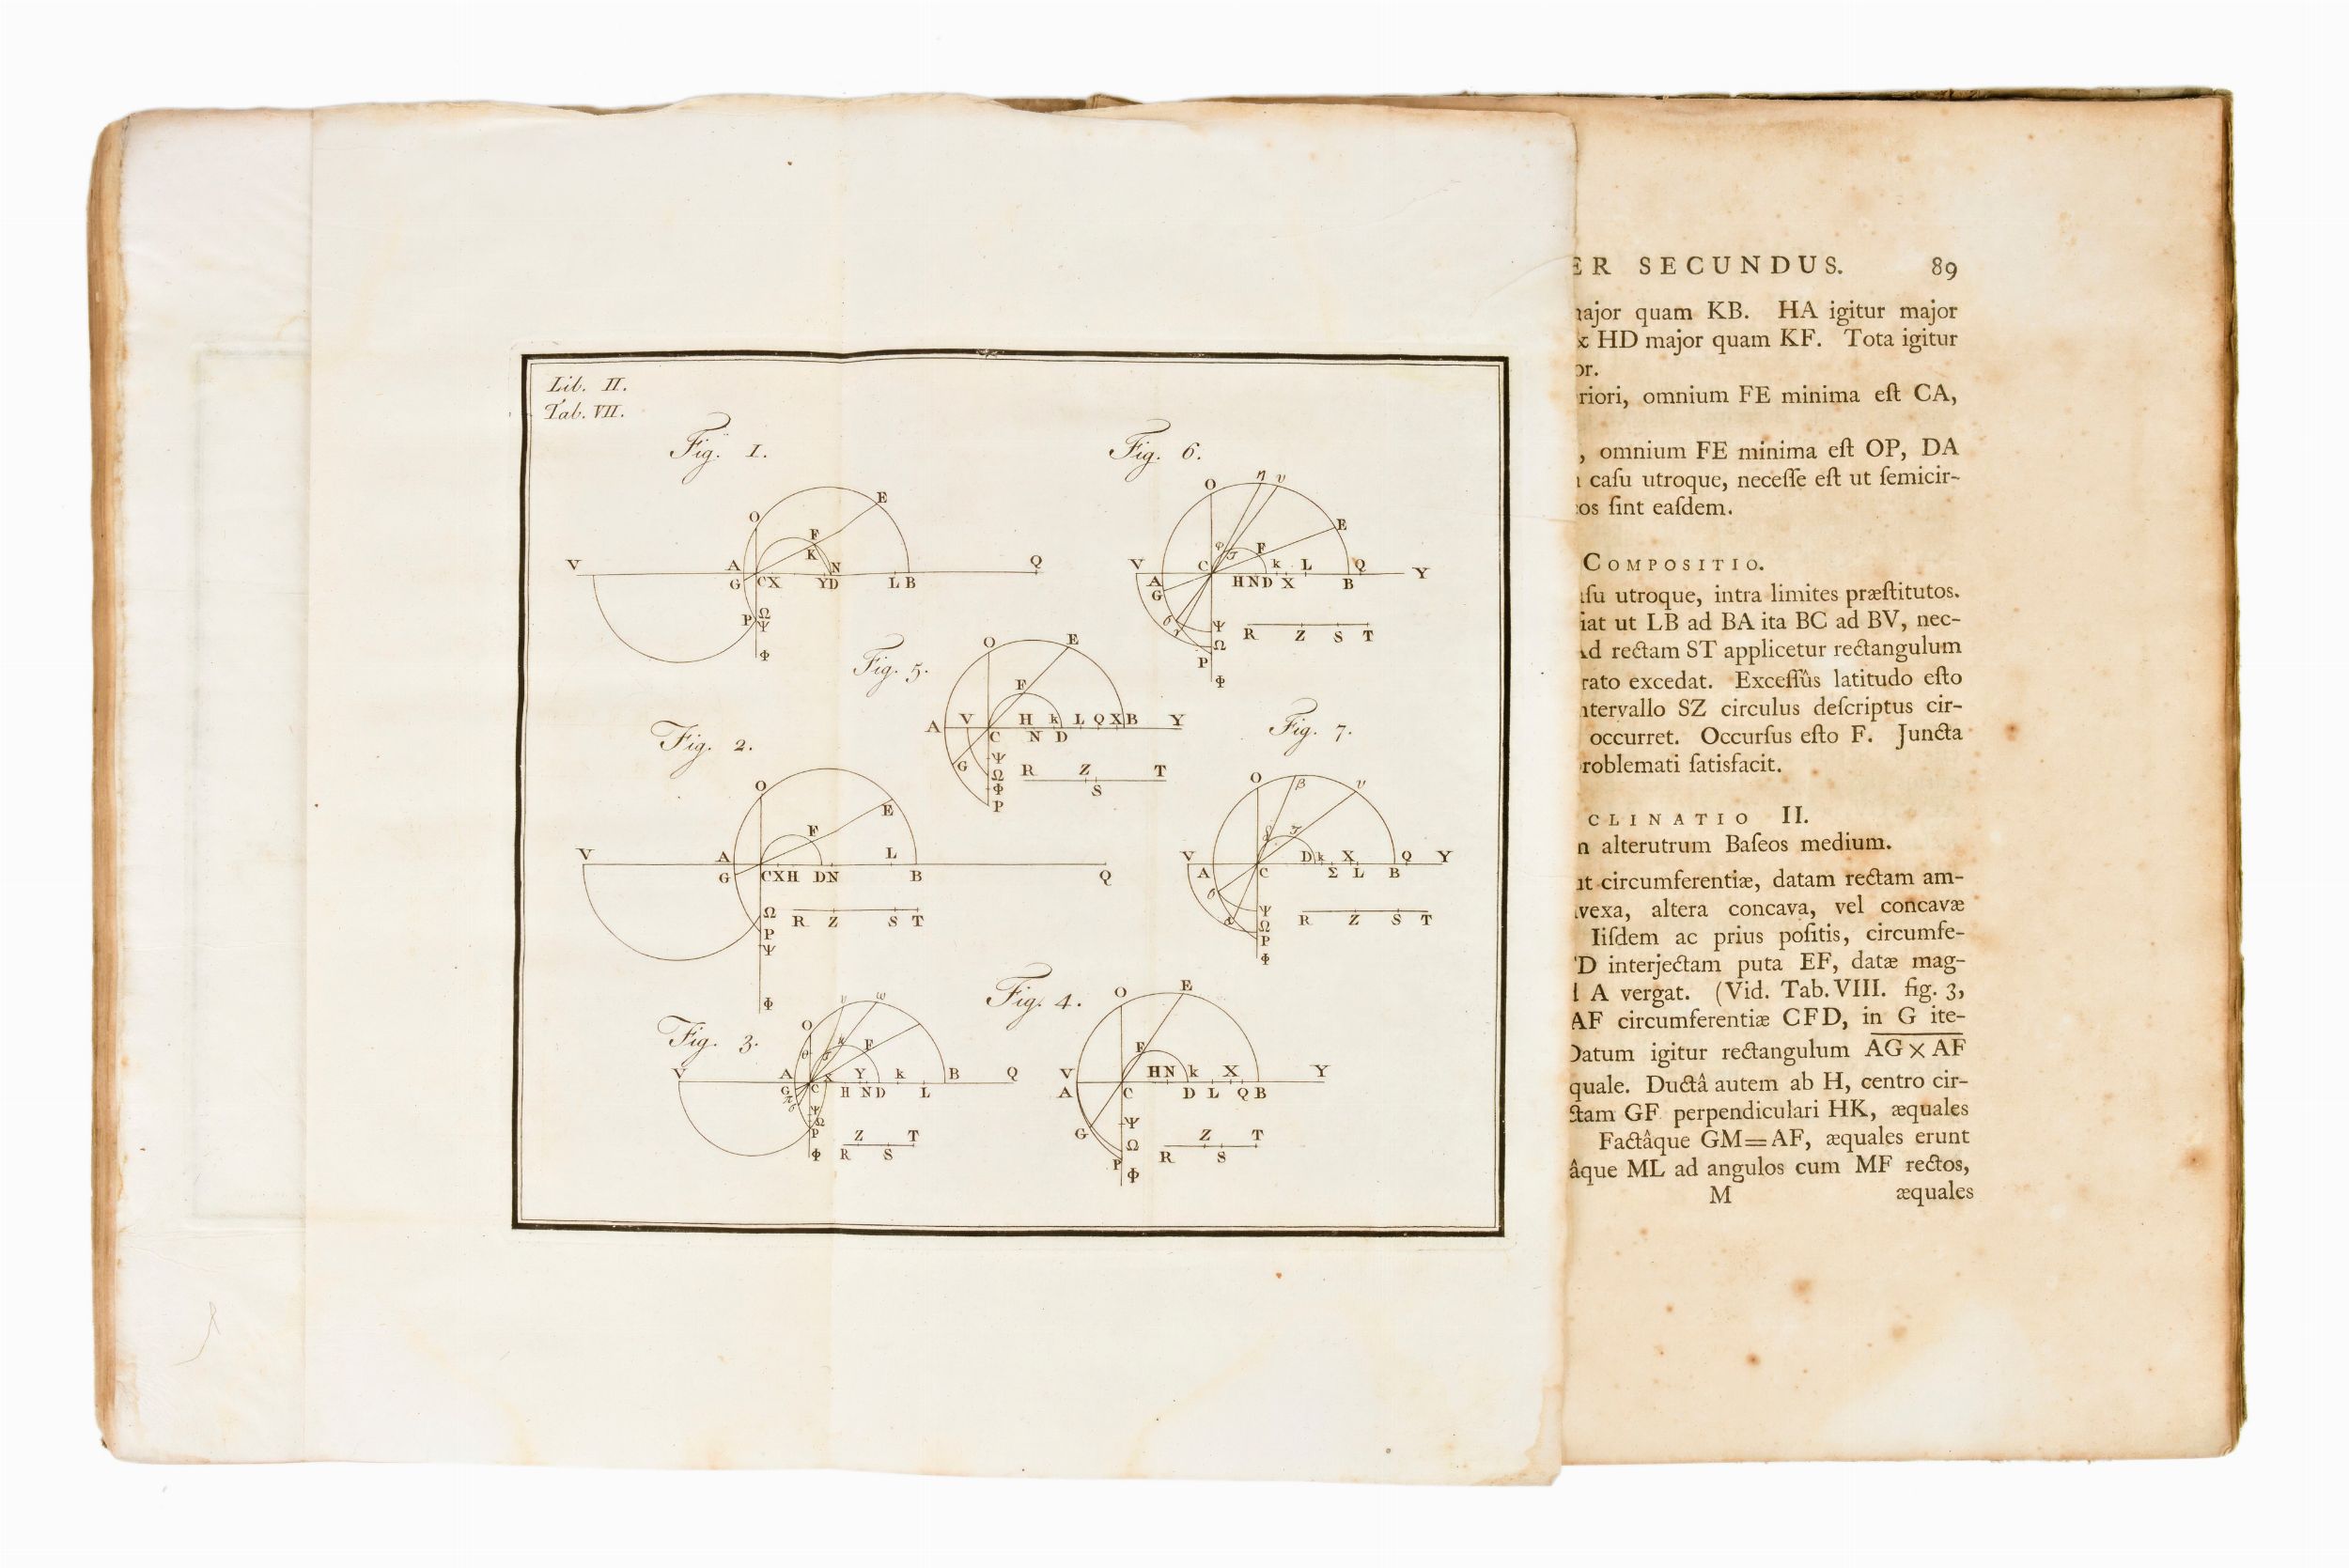 Lib. II.
Tab. VII.
Fig. 1.
E
O
F
K
V A N Q
G CX YD L B
P Ω
Ψ
Φ
Fig. 6.
O η υ
E
φ F
V C k L Q Y
A H N D X B
G
Ψ R Z S T
Ω
P
Φ
Fig. 5.
O E
F
V H k L Q X B Y
A C N D
G Ψ
Ω R Z T
Φ S
P
Fig. 2.
O
E
F
V A L
G C X H D N B Q
Ω R Z S T
P
Ψ
Φ
Fig. 7.
O β υ
V D k X Q Y
A C Σ L B
Ψ
Ω R Z S T
P
Φ
Fig. 3.
υ ω
O
θ F
V A X Y k B Q
G C H N D L
Ψ
Ω
P Z T
Φ R S
Fig. 4.
O E
F
V H N k X Y
A C D L Q B
Ψ
G Ω Z T
P R S
Φ
ER SECUNDUS. 89
ajor quam KB. HA igitur major
HD major quam KF. Tota igitur
or.
riori, omnium FE minima eſt CA,
, omnium FE minima eſt OP, DA
caſu utroque, neceſſe eſt ut ſemicir-
os ſint eaſdem.
COMPOSITIO.
ſu utroque, intra limites præſtitutos.
iat ut LB ad BA ita BC ad BV, nec-
d rectam ST applicetur rectangulum
rato excedat. Exceſſûs latitudo eſto
tervallo SZ circulus deſcriptus cir-
occurret. Occurſus eſto F. Juncta
roblemati ſatisfacit.
CLINATIO II.
n alterutrum Baſeos medium.
t circumferentiæ, datam rectam am-
vexa, altera concava, vel concavæ
Iiſdem ac prius poſitis, circumfe-
D interjectam puta EF, datæ mag-
A vergat. (Vid. Tab. VIII. fig. 3,
AF circumferentiæ CFD, in G ite-
Datum igitur rectangulum AG × AF
quale. Ductâ autem ab H, centro cir-
ctam GF perpendiculari HK, æquales
Factâque GM=AF, æquales erunt
âque ML ad angulos cum MF rectos,
M æquales